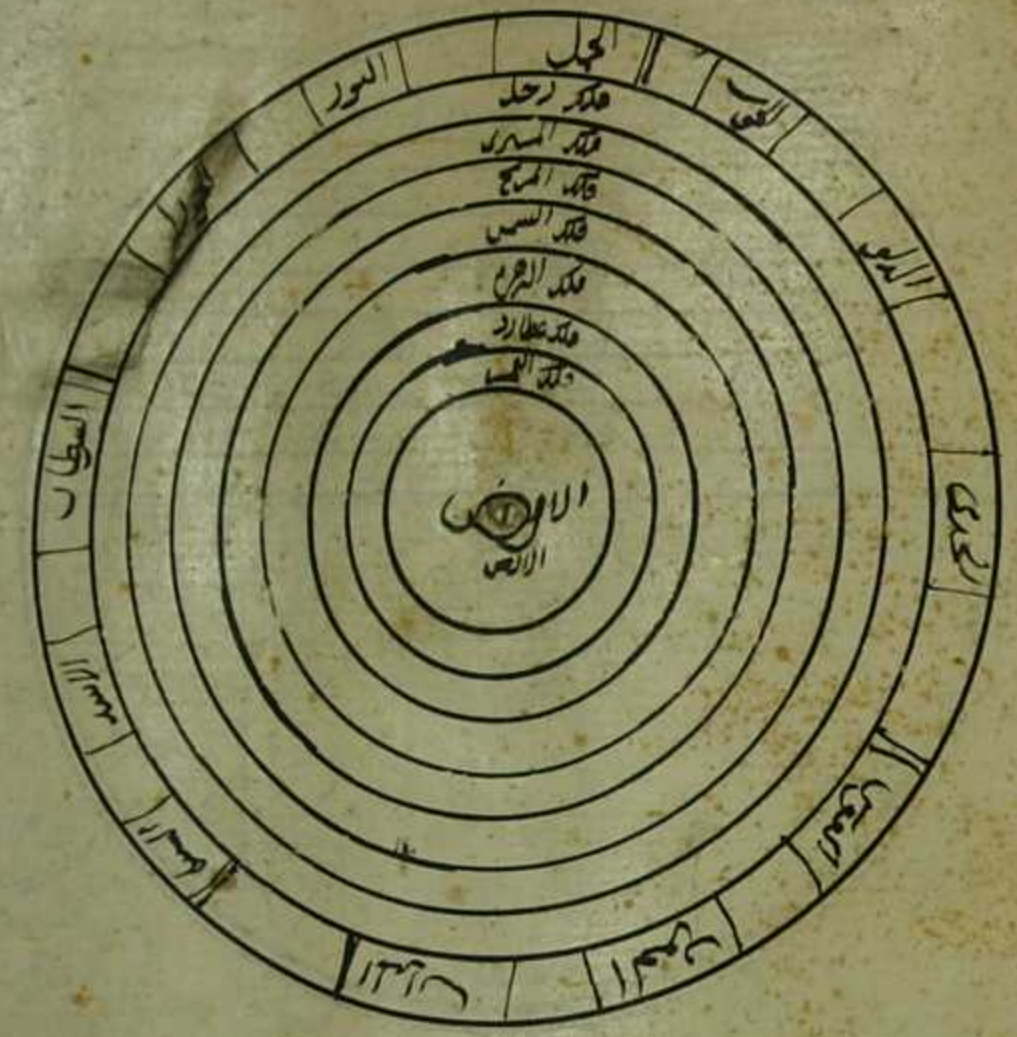 الحمل
الثور
السرطان
الاسد
السنبلة
الميزان
العقرب
القوس
الجدى
الدلو
فلك زحل
فلك المشترى
فلك المريخ
فلك الشمس
فلك الزهرة
فلك عطارد
فلك القمر
الارض
الارض